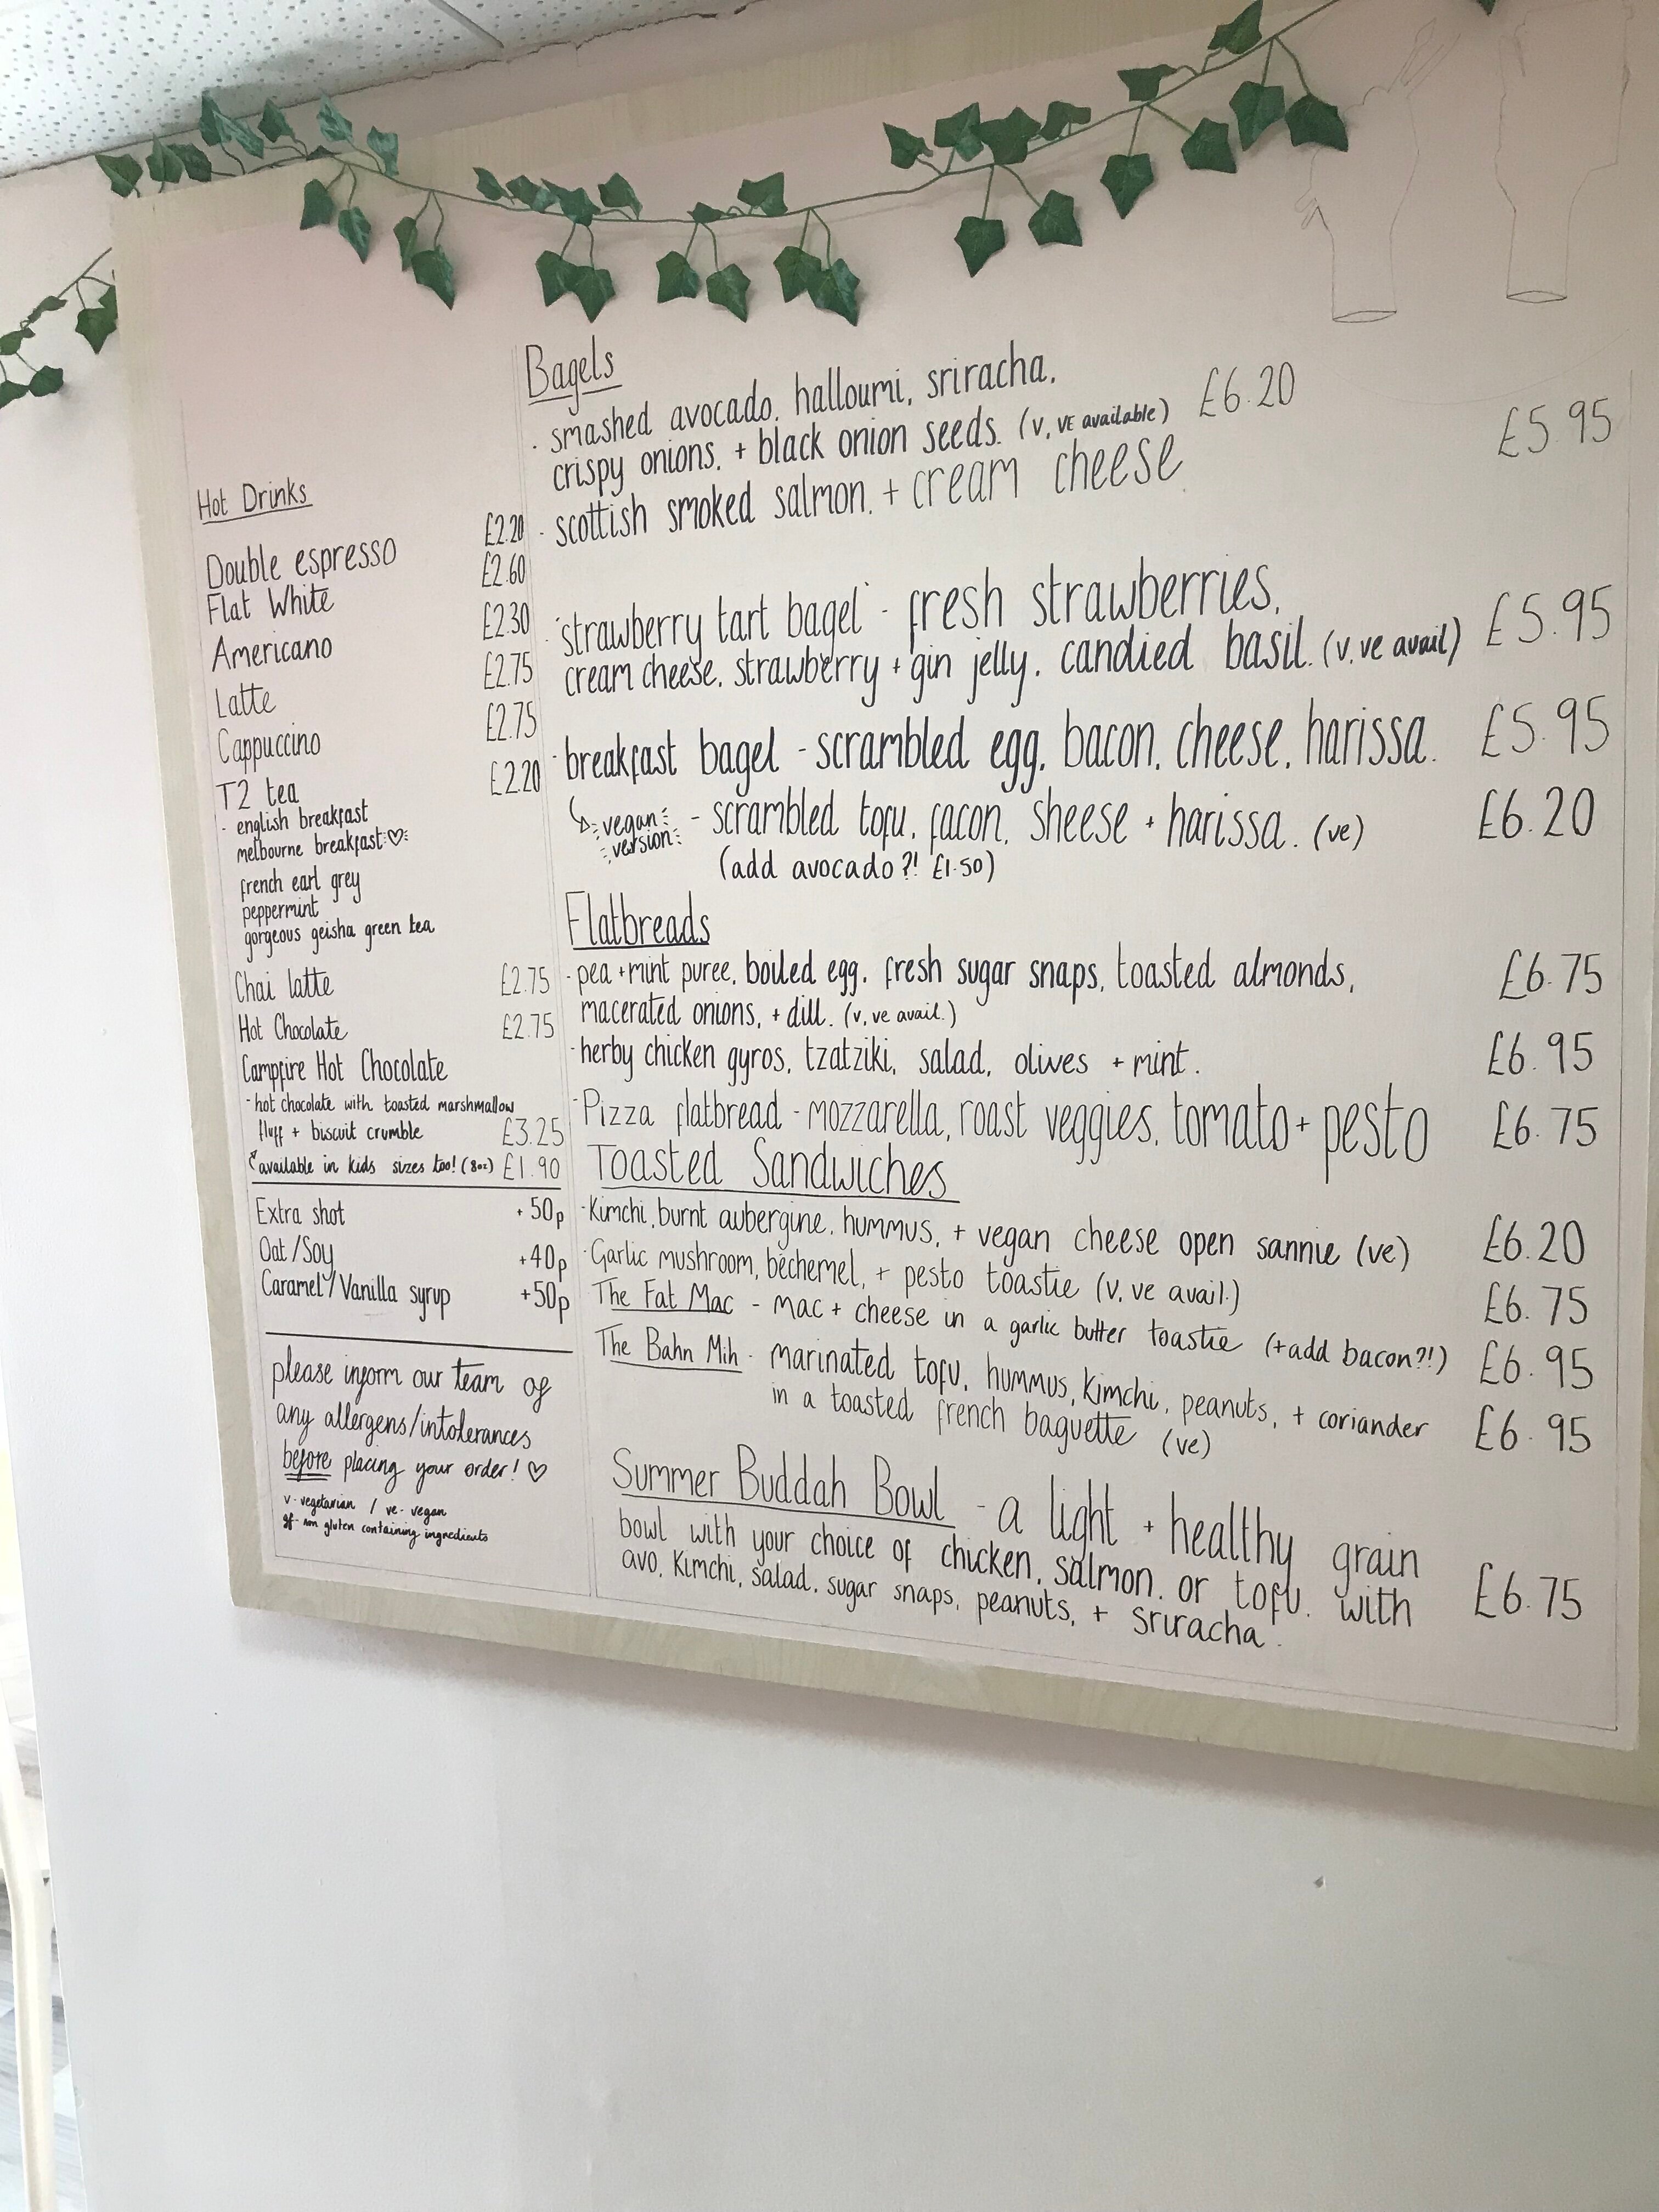 Hot Drinks
Double espresso £2.20
Flat White £2.60
Americano £2.30
Latte £2.75
Cappuccino £2.75
T2 tea £2.20
- english breakfast
melbourne breakfast ♡
french earl grey
peppermint
gorgeous geisha green tea
Chai latte £2.75
Hot Chocolate £2.75
Campfire Hot Chocolate
- hot chocolate with toasted marshmallow
fluff + biscuit crumble £3.25
available in kids sizes too! (8oz) £1.90
Extra shot + 50p
Oat/Soy +40p
Caramel/Vanilla syrup +50p
please inform our team of
any allergens/intolerances
before placing your order! ♡
v-vegetarian / ve-vegan
gf- non gluten containing ingredients
Bagels
· smashed avocado, halloumi, sriracha,
crispy onions, + black onion seeds. (v, ve available) £6.20
· scottish smoked salmon, + cream cheese £5.95
· 'strawberry tart bagel' - fresh strawberries,
cream cheese, strawberry + gin jelly, candied basil. (v, ve avail) £5.95
· breakfast bagel - scrambled egg, bacon, cheese, harissa. £5.95
vegan - scrambled tofu, facon, sheese + harissa. (ve) £6.20
version
(add avocado?! £1.50)
Flatbreads
· pea + mint puree, boiled egg, fresh sugar snaps, toasted almonds, £6.75
macerated onions, + dill. (v, ve avail.)
· herby chicken gyros, tzatziki, salad, olives + mint. £6.95
· Pizza flatbread - mozzarella, roast veggies, tomato + pesto £6.75
Toasted Sandwiches
· Kimchi, burnt aubergine, hummus, + vegan cheese open sannie (ve) £6.20
· Garlic mushroom, bechemel, + pesto toastie (v, ve avail.) £6.75
The Fat Mac - mac + cheese in a garlic butter toastie (+add bacon?!) £6.95
The Bahn Mih - marinated tofu, hummus, kimchi, peanuts, + coriander £6.95
in a toasted french baguette (ve)
Summer Buddah Bowl - a light + healthy grain
bowl with your choice of chicken, salmon, or tofu. with £6.75
avo, kimchi, salad, sugar snaps, peanuts, + sriracha.